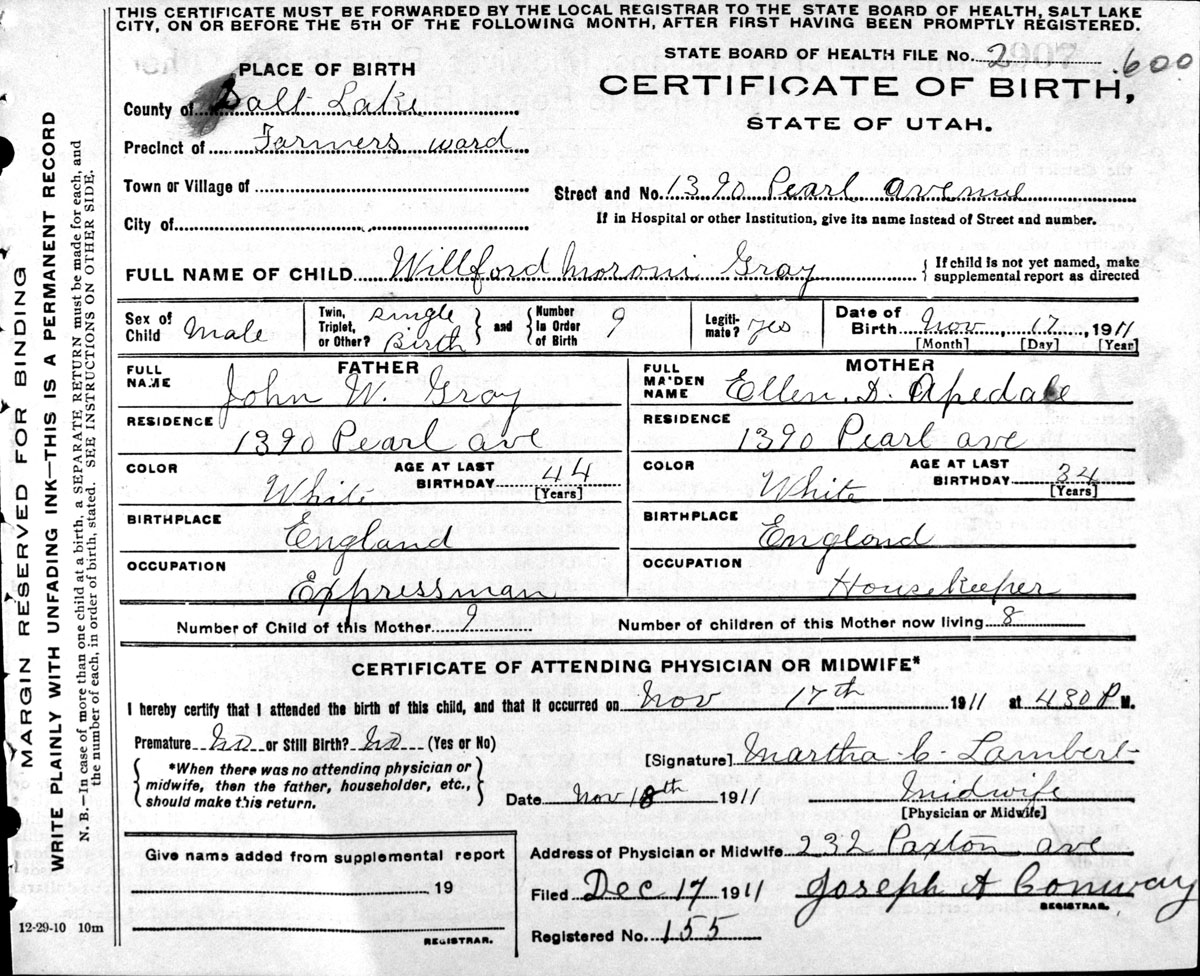 THIS CERTIFICATE MUST BE FORWARDED BY THE LOCAL REGISTRAR TO THE STATE BOARD OF HEALTH, SALT LAKE
CITY, ON OR BEFORE THE 5TH OF THE FOLLOWING MONTH, AFTER FIRST HAVING BEEN PROMPTLY REGISTERED.
STATE BOARD OF HEALTH FILE No. 2 600
PLACE OF BIRTH
CERTIFICATE OF BIRTH,
STATE OF UTAH.
County of Salt Lake
Precinct of Farmers ward
Town or Village of
Street and No. 1390 Pearl avenue
City of
If in Hospital or other Institution, give its name instead of Street and number.
FULL NAME OF CHILD Willford Moroni Gray { If child is not yet named, make supplemental report as directed
Sex of Child Male Twin, Triplet, or Other? single Birth } and { Number In Order of Birth 9 Legiti- mate? yes Date of Birth Nov, 17, 1911
[Month] [Day] [Year]
FATHER
FULL NAME John W. Gray
RESIDENCE 1390 Pearl ave
COLOR White AGE AT LAST BIRTHDAY 44 [Years]
BIRTHPLACE England
OCCUPATION Expressman
MOTHER
FULL MAIDEN NAME Ellen. D. Apedale
RESIDENCE 1390 Pearl ave
COLOR White AGE AT LAST BIRTHDAY 34 [Years]
BIRTHPLACE England
OCCUPATION Housekeeper
Number of Child of this Mother 9 Number of children of this Mother now living 8
CERTIFICATE OF ATTENDING PHYSICIAN OR MIDWIFE*
I hereby certify that I attended the birth of this child, and that it occurred on Nov 17th 1911 at 430 P M.
Premature No or Still Birth? No (Yes or No)
{ *When there was no attending physician or midwife, then the father, householder, etc., should make this return. }
[Signature] Martha C Lambert
Date Nov 18th 1911 Midwife
[Physician or Midwife]
Give name added from supplemental report
19
REGISTRAR.
Address of Physician or Midwife 232 Paxton ave
Filed Dec 17 1911 Joseph A Conway
REGISTRAR.
Registered No. 155
12-29-10 10m
MARGIN RESERVED FOR BINDING
WRITE PLAINLY WITH UNFADING INK—THIS IS A PERMANENT RECORD
N. B.—In case of more than one child at a birth, a SEPARATE RETURN must be made for each, and
the number of each, in order of birth, stated. SEE INSTRUCTIONS ON OTHER SIDE.